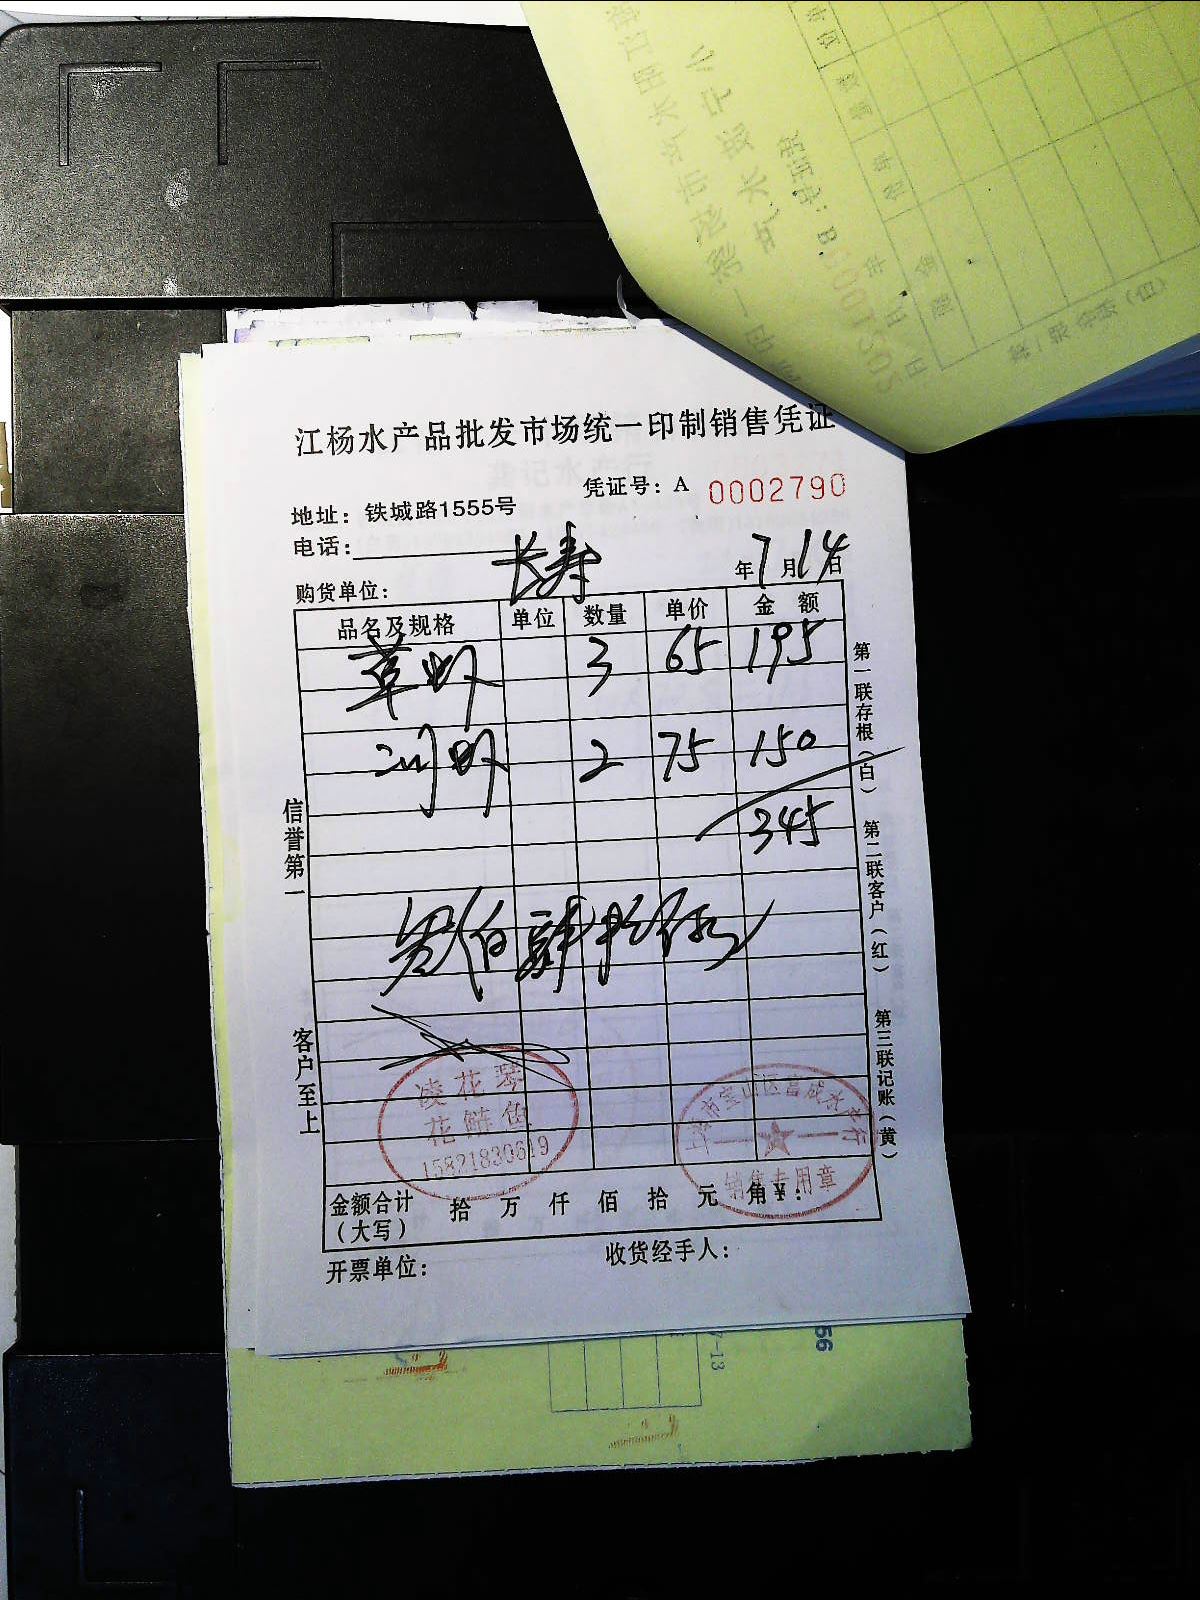 江杨水产品批发市场统一印制销售凭证
凭证号：A 0002790
地址：铁城路1555号
电话：
购货单位：长寿
年7月14日
品名及规格 单位 数量 单价 金额
草虾 3 65 195
河虾 2 75 150
345
叁佰肆拾伍元
信誉第一
客户至上
第一联存根（白） 第二联客户（红） 第三联记账（黄）
凌花琴
花鲢鱼
15821830619
销售专用章
金额合计（大写） 拾 万 仟 佰 拾 元 角 ¥：
开票单位：
收货经手人：